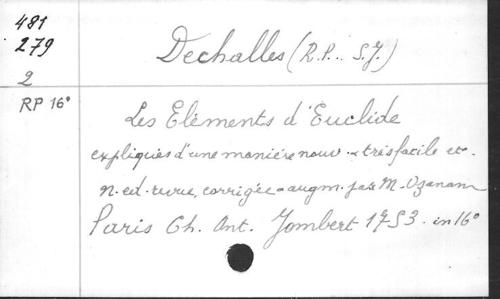 481
279
2
RP 16°
Dechalles (R.P.. S.J.)
Les Elèments d'Euclide
expliqués d'une manière nouv. & très facile et
n. ed. revue, corrigée & augm. par M. Ozanam
Paris Ch. Ant. Jombert 1753. in 16°